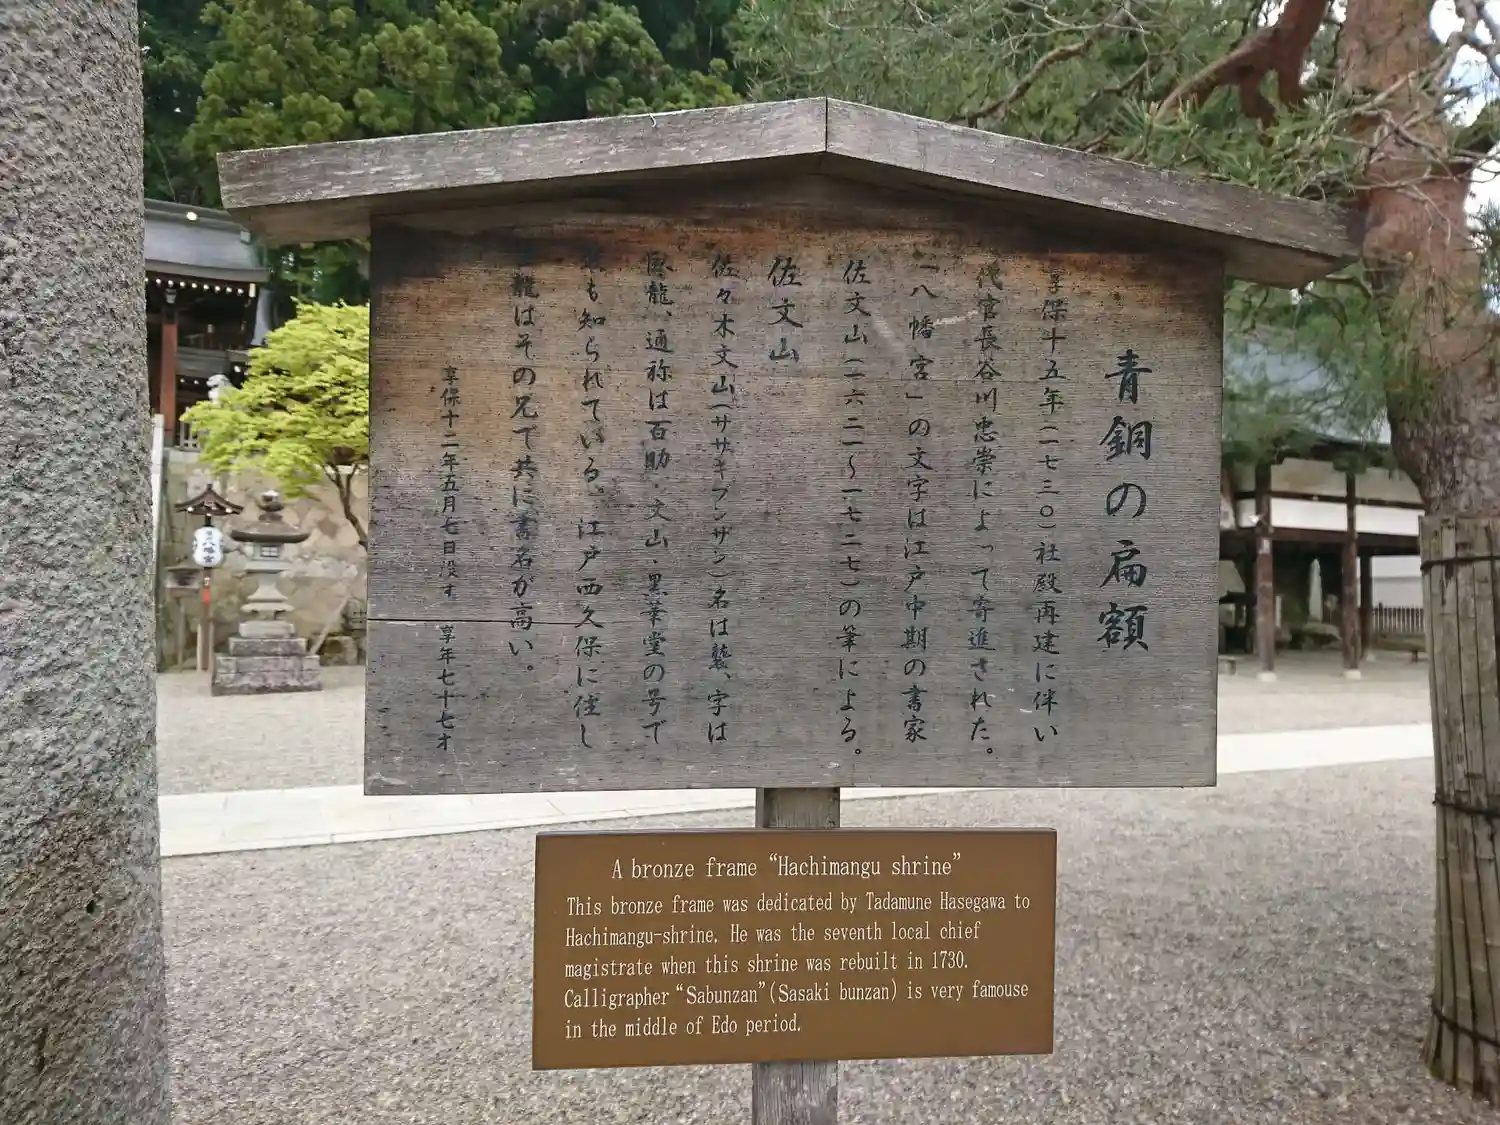 青銅の扁額
享保十五年(一七三〇)社殿再建に伴い
代官長谷川忠崇によって寄進された。
「八幡宮」の文字は江戸中期の書家
佐文山(一六三一〜一七二七)の筆による。
佐文山
佐々木文山(ササキブンザン)名は襲、字は
臥龍、通称は百助・文山・墨華堂の号で
も知られている。江戸西久保に住し
龍はその兄で共に書名が高い。
享保十二年五月七日没す。享年七十七才
A bronze frame “Hachimangu shrine”
This bronze frame was dedicated by Tadamune Hasegawa to
Hachimangu-shrine. He was the seventh local chief
magistrate when this shrine was rebuilt in 1730.
Calligrapher “Sabunzan”(Sasaki bunzan) is very famouse
in the middle of Edo period.
八幡宮